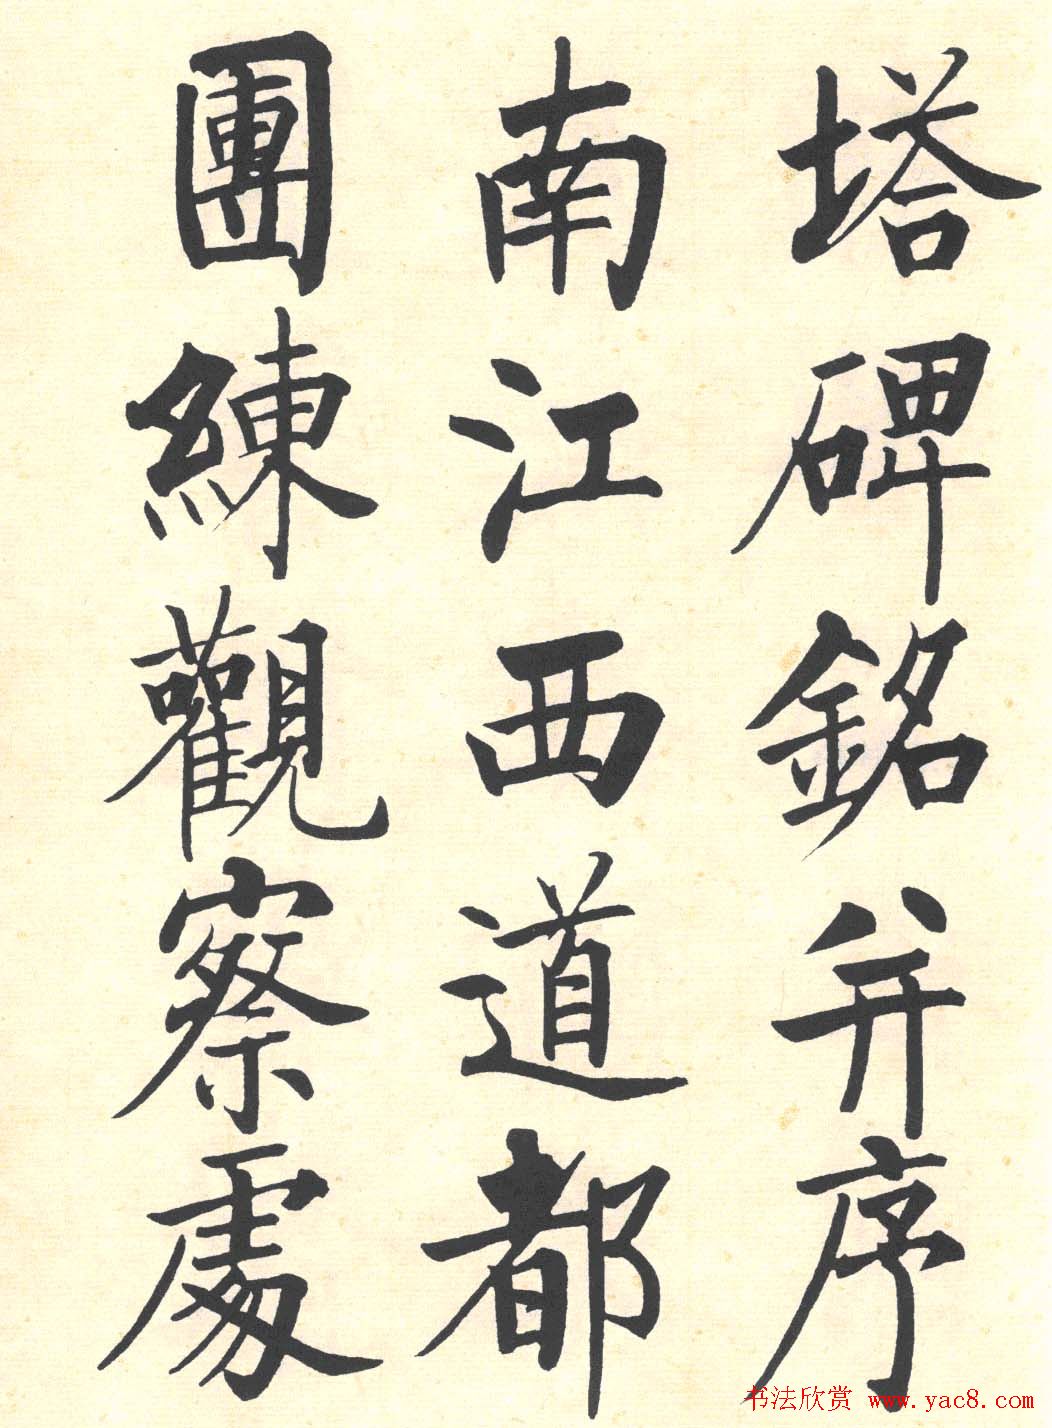 塔碑銘并序
南江西道都
團練觀察處
书法欣赏 www.yac8.com